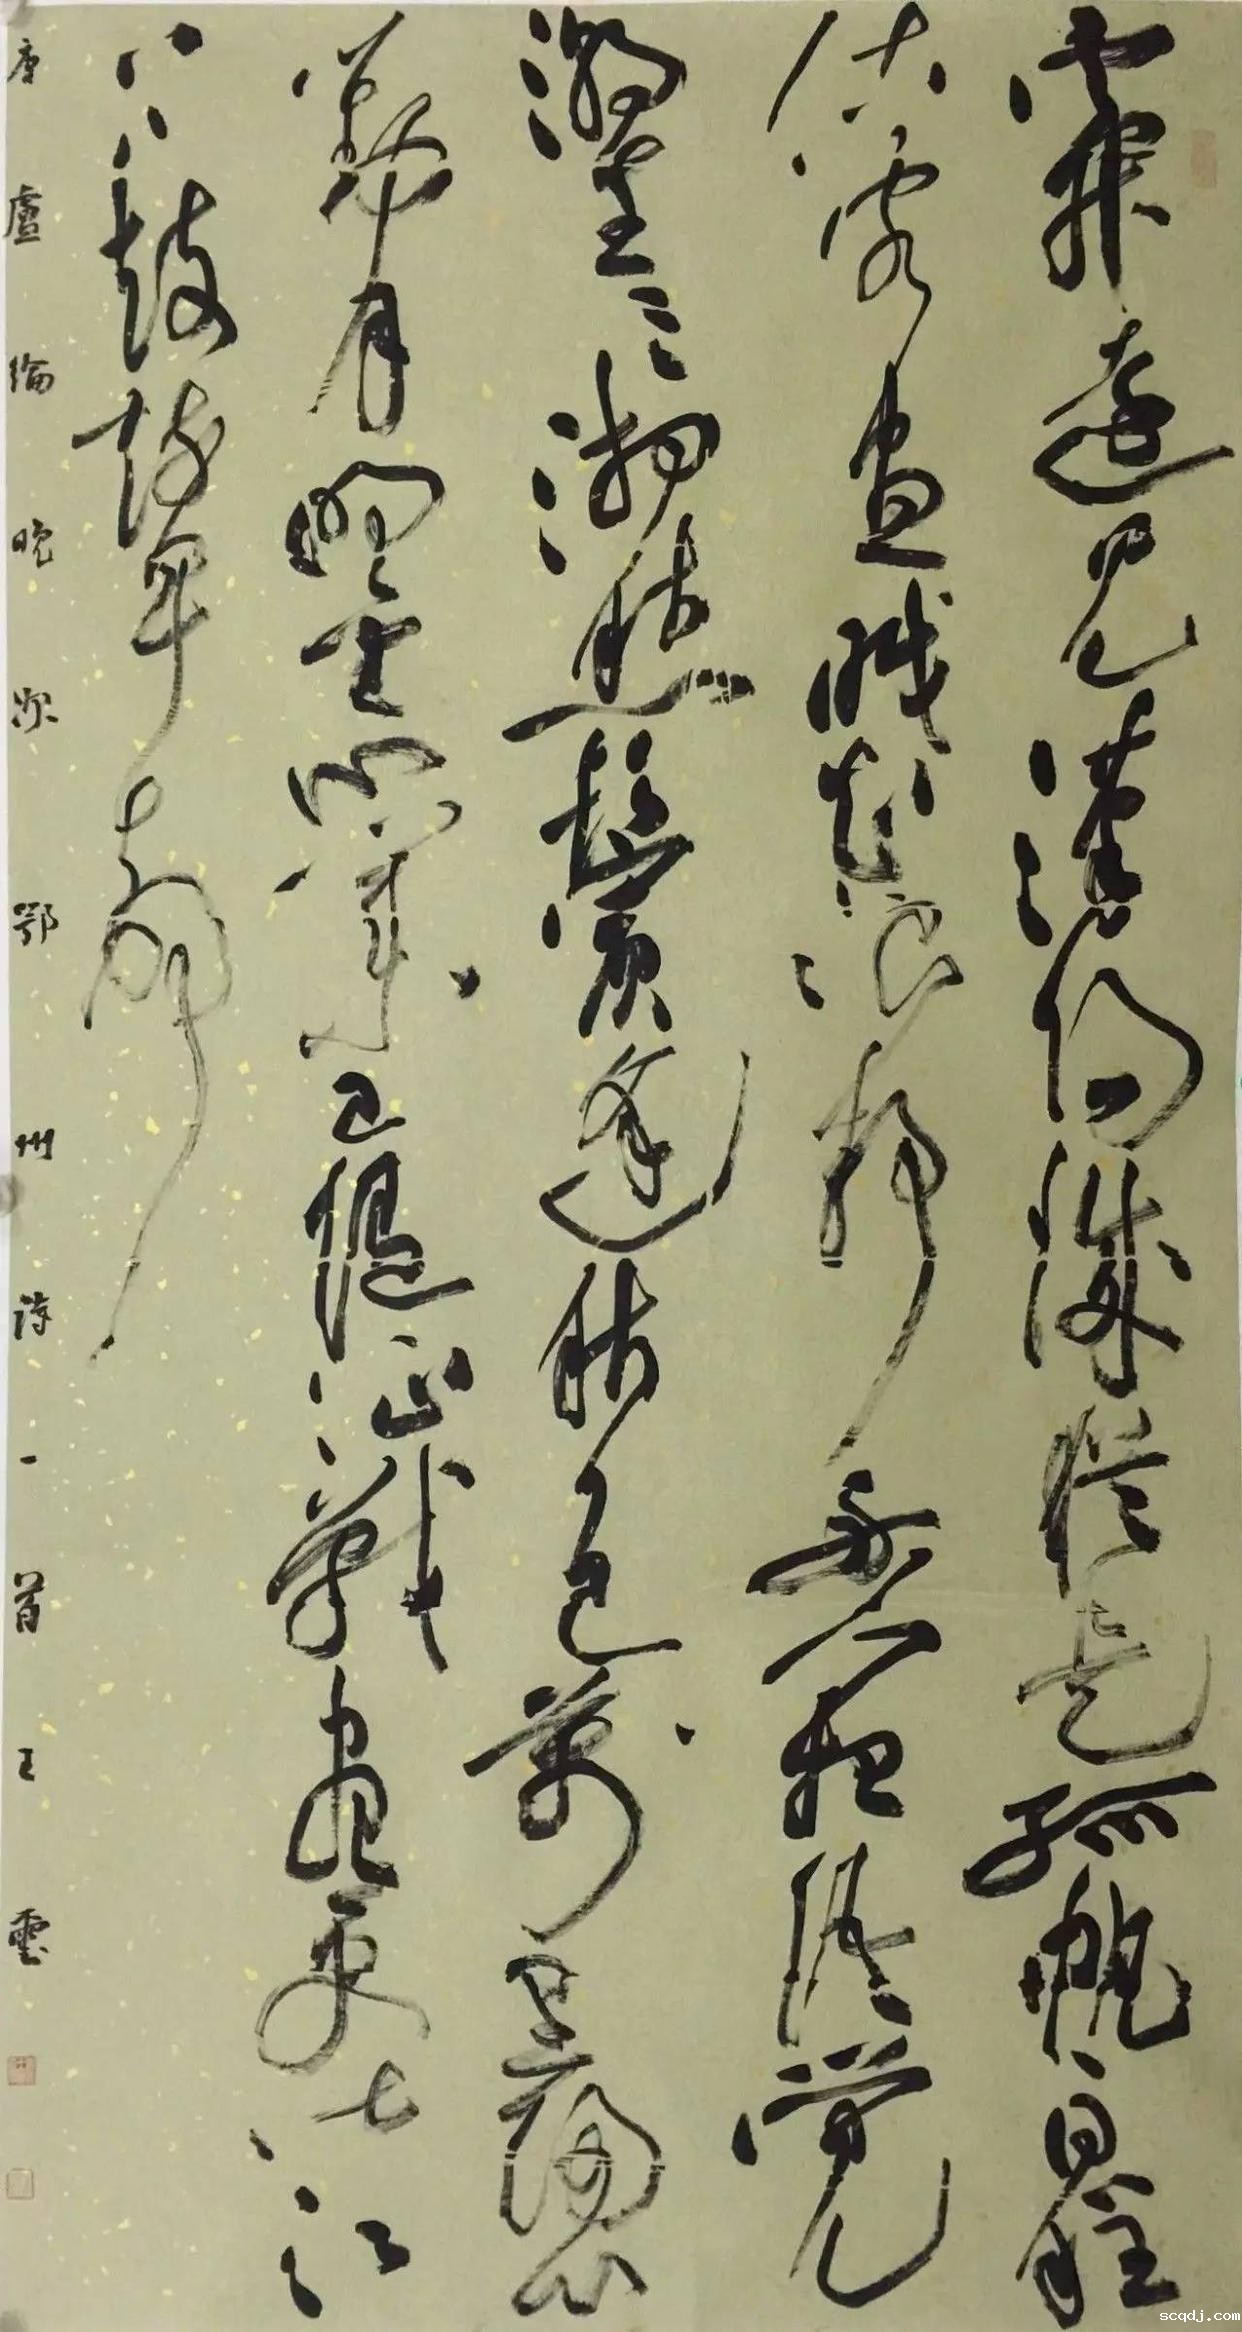 雲開遠見漢陽城猶是孤帆一日程
估客晝眠知浪靜舟人夜語覺
潮生三湘愁鬢逢秋色萬里歸心
對月明舊業已隨征戰盡更堪江
上鼓鼙聲
唐盧綸晚次鄂州詩一首王雲
scqdj.com